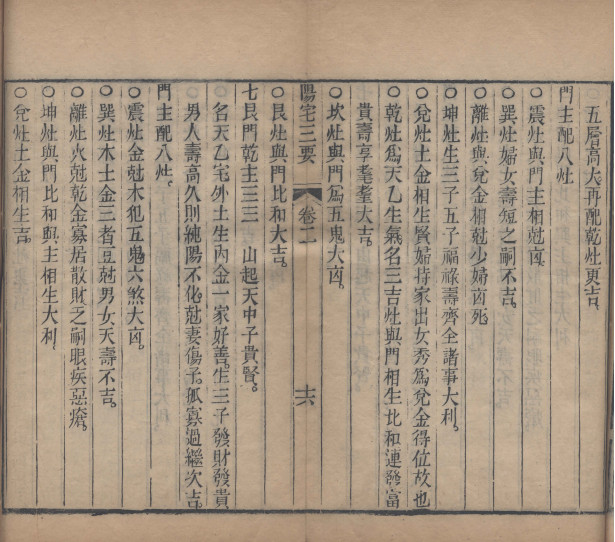 ○五層高大再配乾灶更吉
門主配八灶
○震灶與門主相尅凶
○巽灶婦女壽短乏嗣不吉。
○離灶與兌金相尅少婦凶死
○坤灶生三子五子福祿壽齊全諸事大利。
○兌灶土金相生賢婦持家出女秀爲兌金得位故也
○乾灶爲天乙生氣名三吉灶與門相生比和連發富
貴壽享耄耋大吉。
○坎灶與門爲五鬼大凶。
陽宅三要 卷二 十六
○艮灶與門比和大吉。
七艮門乾主三三 山起天中子貴賢。
○名天乙宅外土生內金一家好善。生三子發財發貴
男人壽高久則純陽不化尅妻傷子。孤寡過繼次吉。
門主配八灶。
○震灶金尅木犯五鬼六煞大凶。
○巽灶木土金三者互尅男女夭壽不吉。
○離灶火尅乾金寡居散財乏嗣眼疾惡瘡。
○坤灶與門比和與主相生大利
○兌灶土金相生吉。